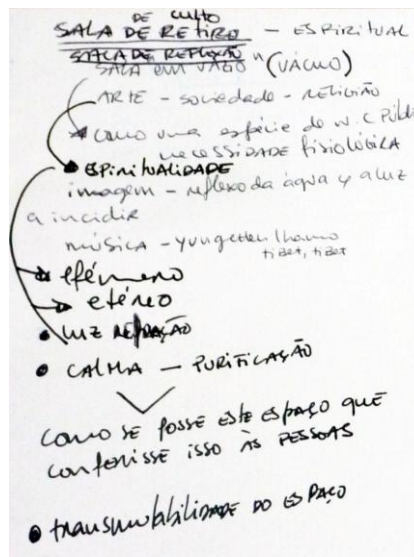 DE CULTO
SALA DE RETIRO — ESPIRITUAL
SALA DE REFLEXÃO
SALA EM VAZIO " (VÁCUO)
ARTE - sociedade - RELIGIÃO
como uma espécie de W.C. Públi
necessidade fisiológica
ESPIRITUALIDADE
imagem - reflexo da água y a luz
a incidir
música - yungchen lhamo
tibet, tibet
efémero
etéreo
LUZ
CALMA — PURIFICAÇÃO
como se fosse este espaço que
conferisse isso às PESSOAS
transmutabilidade do ESPAÇO